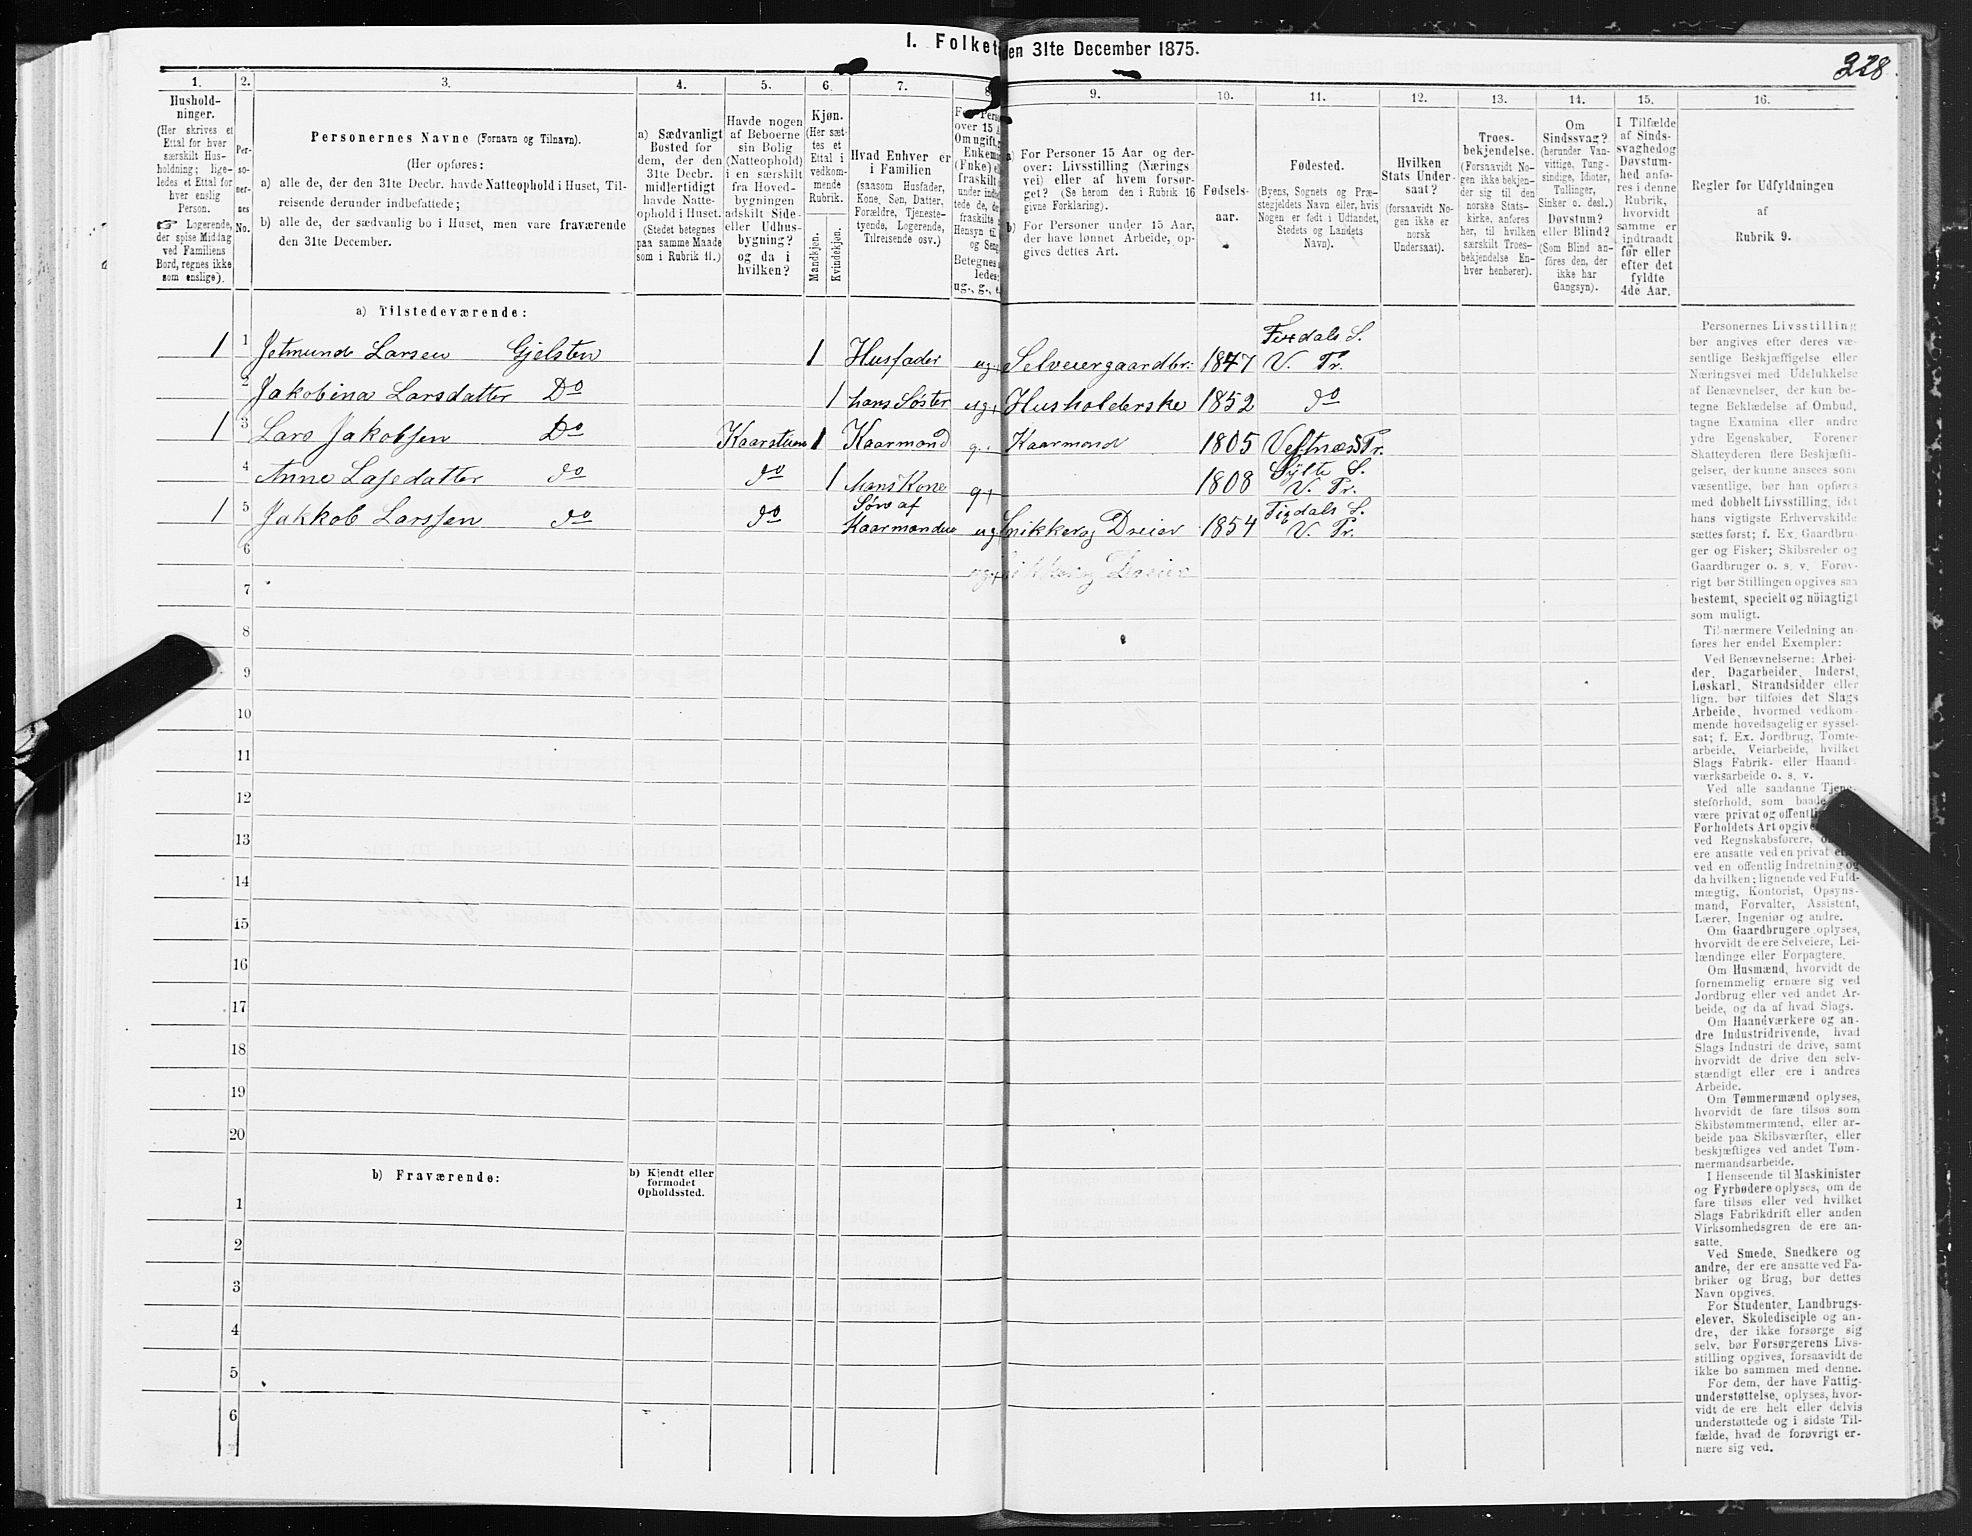 1. Folket
den 31te December 1875.
328.
1.
Hushold-
ninger.
(Her skrives et
Ettal for hver
særskilt Hus-
holdning; lige-
ledes et Ettal for
hver enslig
Person.
☞ Logerende,
der spise Middag
ved Familiens
Bord, regnes ikke
som enslige).
2.
Per-
so-
ner-
nes
No.
3.
Personernes Navne (Fornavn og Tilnavn).
(Her opføres:
a) alle de, der den 31te Decbr. havde Natteophold i Huset, Til-
reisende derunder indbefattede;
b) alle de, der sædvanlig bo i Huset, men vare fraværende
den 31te December.
4.
a) Sædvanligt
Bosted for
dem, der den
31te Decbr.
midlertidigt
havde Natte-
ophold i Huset.
(Stedet betegnes
paa samme Maade
som i Rubrik 11.)
5.
Havde nogen
af Beboerne
sin Bolig
(Natteophold)
i en særskilt
fra Hoved-
bygningen
adskilt Side-
eller Udhus-
bygning?
og da i
hvilken?
6.
Kjøn.
(Her sæt-
tes et
Ettal i
vedkom-
mende
Rubrik.
Mandkjøn.
Kvindekjøn.
7.
Hvad Enhver er
i Familien
(saasom Husfader,
Kone, Søn, Datter,
Forældre, Tjeneste-
tyende, Logerende,
Tilreisende osv.)
8
Perso
over 15 A
Om ugift,
Enkema
(Enke) e
fraskilt
under indb
tede de, d
fraskilte
Hensyn til
og Seng
Betegnes
ledes:
ug., g., e.
9.
a) For Personer 15 Aar og der-
over: Livsstilling (Nærings
vei) eller af hvem forsør-
get? (Se herom den i Rubrik 16
givne Forklaring).
b) For Personer under 15 Aar,
der have lønnet Arbeide, op-
gives dettes Art.
10.
Fødsels-
aar.
11.
Fødested.
(Byens, Sognets og Præ-
stegjeldets Navn eller, hvis
Nogen er født i Udlandet,
Stedets og Landets
Navn).
12.
Hvilken
Stats Under-
saat?
(forsaavidt No-
gen ikke er
norsk
Undersaat).
13.
Troes-
bekjendelse.
(Forsaavidt No-
gen ikke bekjen-
der sig til den
norske Stats-
kirke, anføres
her, til hvilken
særskilt Troes-
bekjendelse En-
hver henhører).
14.
Om
Sindssvag?
(herunder Van-
vittige, Tung-
sindige, Idioter,
Tullinger,
Sinker o. desl.)
Døvstum?
eller Blind?
(Som Blind an-
føres den, der
ikke har
Gangsyn).
15.
I Tilfælde
af Sinds-
svaghed og
Døvstum-
hed anfø-
res i denne
Rubrik,
hvorvidt
samme er
indtraadt
før eller
efter det
fyldte
4de Aar.
16.
Regler for Udfyldningen
af
Rubrik 9.
a) Tilstedeværende:
1 1 Jetmund Larsen Gjelsten 1 Husfader ug. Selveiergaardbr. 1847 Fixdals S. V. Pr.
2 Jakobina Larsdatter Do 1 hans Søster ug. Husholderske 1852 do
1 3 Lars Jakobsen Do Kaarstuen 1 Kaarmand g. Kaarmand 1805 Vestnæs Pr.
4 Anne Lasedatter do do 1 Hans Kone g. 1808 Sylte S. V. Pr.
1 5 Jakkob Larssen do do Søn af Kaarmanden ug. Snikker og Dreier 1854 Fixdals S. V. Pr.
6
7
8
9
10
11
12
13
14
15
16
17
18
19
20
b) Fraværende:
b) Kjendt eller
formodet
Opholdssted.
1
2
3
4
5
6
Personernes Livsstilling
bør angives efter deres væ-
sentlige Beskjæftigelse eller
Næringsvei med Udelukkelse
af Benævnelser, der kun be-
tegne Beklædelse af Ombud,
tagne Examina eller andre
ydre Egenskaber. Forener
Skatteyderen flere Beskjæfti-
gelser, der kunne ansees som
væsentlige, bør han opføres
med dobbelt Livsstilling, idet
hans vigtigste Erhvervskilde
sættes først; f. Ex. Gaardbru-
ger og Fisker; Skibsreder og
Gaardbruger o. s. v. Forøv-
rigt bør Stillingen opgives saa
bestemt, specielt og nøiagtigt
som muligt.
Til nærmere Veiledning an-
føres her endel Exempler:
Ved Benævnelserne: Arbei-
der, Dagarbeider, Inderst,
Løskarl, Strandsidder eller
lign. bør tilføies det Slags
Arbeide, hvormed vedkom-
mende hovedsagelig er syssel-
sat; f. Ex. Jordbrug, Tomte-
arbeide, Veiarbeide, hvilket
Slags Fabrik- eller Haand-
værksarbeide o. s. v.
Ved alle saadanne Tjene-
steforhold, som baade
være privat og offentli
Forholdets Art opgive
ved Regnskabsførere,
ere ansatte ved en privat el
ved en offentlig Indretning og
da hvilken; lignende ved Fuld-
mægtig, Kontorist, Opsyns-
mand, Forvalter, Assistent,
Lærer, Ingeniør og andre.
Om Gaardbrugere oplyses,
hvorvidt de ere Selveiere, Lei-
lændinge eller Forpagtere.
Om Husmænd, hvorvidt de
fornemmelig ernære sig ved
Jordbrug eller ved andet Ar-
beide, og da af hvad Slags.
Om Haandværkere og an-
dre Industridrivende, hvad
Slags Industri de drive, samt
hvorvidt de drive den selv-
stændigt eller ere i andres
Arbeide.
Om Tømmermænd oplyses,
hvorvidt de fare tilsøs som
Skibstømmermænd, eller ar-
beide paa Skibsværfter, eller
beskjæftiges ved andet Tøm-
mermandsarbeide.
I Henseende til Maskinister
og Fyrbødere oplyses, om de
fare tilsøs eller ved hvilket
Slags Fabrikdrift eller anden
Virksomhedsgren de ere an-
satte.
Ved Smede, Snedkere og
andre, der ere ansatte ved Fa-
briker og Brug, bør dettes
Navn opgives.
For Studenter, Landbrugs-
elever, Skoledisciple og an-
dre, der ikke forsørge sig
selv, bør Forsørgerens Livs-
stilling opgives, forsaavidt de
ikke bo sammen med denne.
For dem, der have Fattig-
understøttelse, oplyses, hvor-
vidt de ere helt eller delvis
understøttede og i sidste Til-
fælde, hvad de forøvrigt er-
nære sig ved.